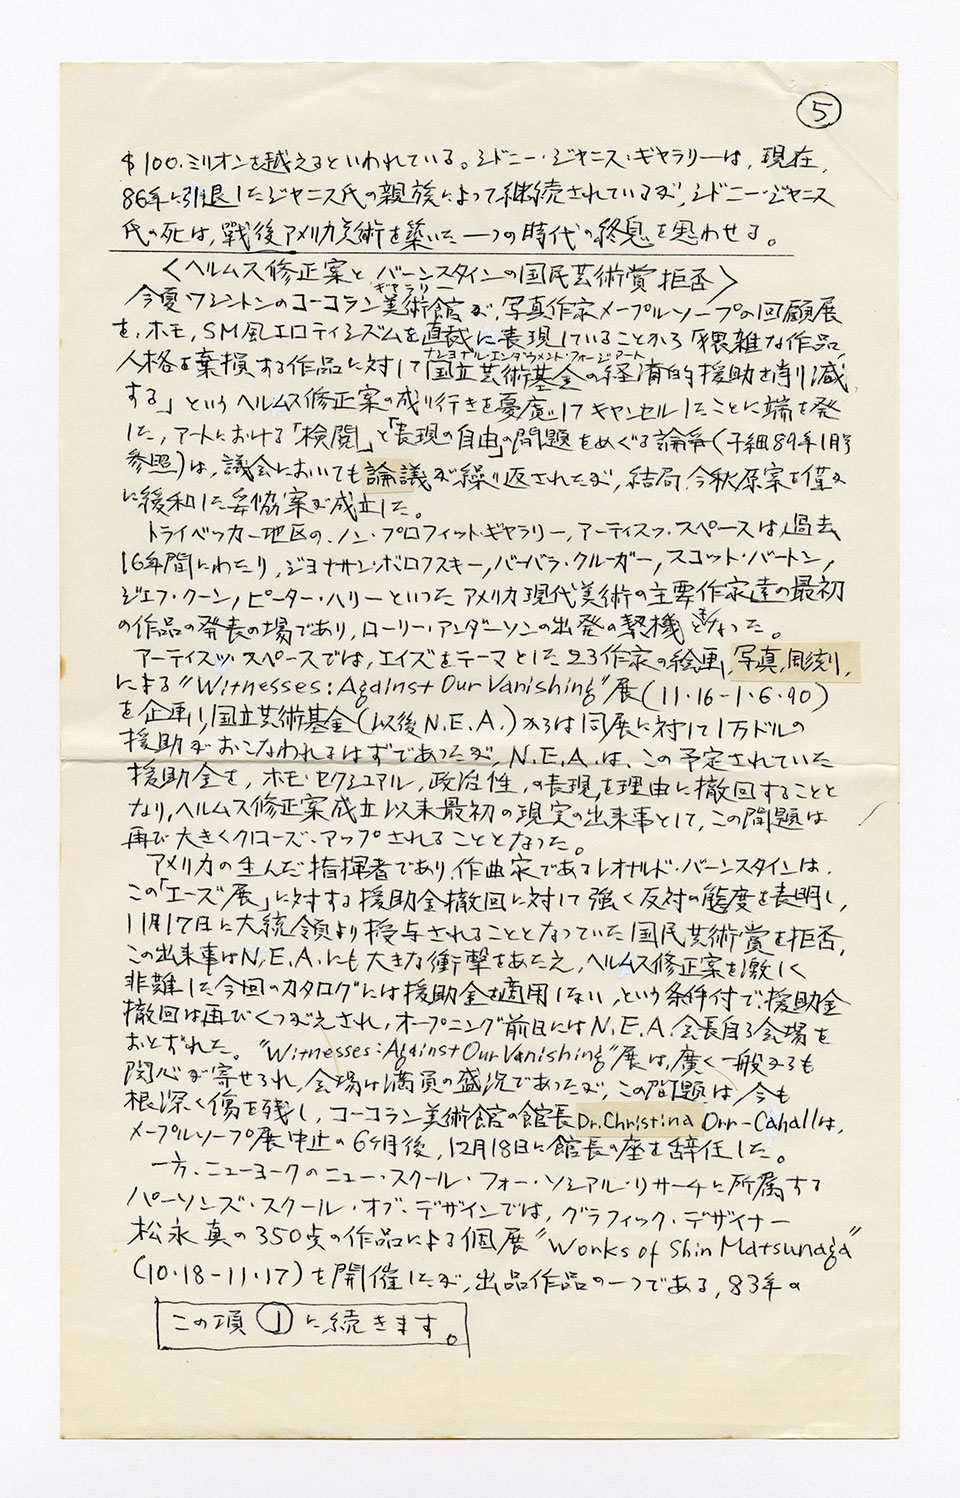 ⑤
$100.ミリオンを越えるといわれている。シドニー・ジャニス・ギャラリーは、現在、
86年に引退したジャニス氏の親族によって継続されているが、シドニー・ジャニス
氏の死は、戰後アメリカ美術を築いた一つの時代の終息を思わせる。
〈ヘルムス修正案と バーンスタインの国民芸術賞拒否〉
ギャラリー
今夏ワシントンのコーコラン美術館が、写真作家メープルソープの回顧展
を、ホモ、SM風エロティシズムを直裁に表現していることから「猥雑な作品、
ナショナル・エンダウメント・フォー・ジ・アート
人格を棄損する作品に対して国立芸術基金の経済的援助を削り減
する」というヘルムス修正案の成り行きを憂慮してキャンセルしたことに端を発
した、アートにおける「検閲」と「表現の自由」の問題をめぐる論争(子細89年1月号
参照)は、議会においても論議が繰り返されたが、結局、今秋原案を僅か
に緩和した妥協案が成立した。
トライベッカー地区の、ノン・プロフィット・ギャラリー、アーティスツ・スペースは過去
16年間にわたり、ジョナサン・ボロフスキー、バーバラ・クルーガー、スコット・バートン、
ジェフ・クーン、ピーター・ハリーといった アメリカ現代美術の主要作家達の最初
の作品の発表の場であり、ローリー・アンダーソンの出発の契機ともなった。
アーティスツ・スペースでは、エイズをテーマとした23作家の絵画、写真、彫刻、
による"Witnesses:Against Our Vanishing"展(11・16-1・6・90)
を企画し、国立芸術基金(以後N.E.A.)からは同展に対して1万ドルの
援助がおこなわれるはずであったが、N.E.A.は、この予定されていた
援助金を、ホモ・セクシュアル、政治性、の表現、を理由に撤回することと
なり、ヘルムス修正案成立以来最初の現実の出来事として、この問題は
再び大きくクローズ・アップされることとなった。
アメリカの生んだ指揮者であり、作曲家であるレオナルド・バーンスタインは、
この「エーズ展」に対する援助金撤回に対して強く反対の態度を表明し、
11月17日に大統領より授与されることとなっていた国民芸術賞を拒否、
この出来事はN.E.A.にも大きな衝撃をあたえ、ヘルムス修正案を激しく
非難した今回のカタログには援助金を適用しない、という条件付で、援助金
撤回は再びくつがえされ、オープニング前日にはN.E.A.会長自ら会場を
おとずれた。"Witnesses:Against Our Vanishing"展は、廣く一般からも
関心が寄せられ、会場は満員の盛況であったが、この問題は、今も
根深く傷を残し、コーコラン美術館の館長Dr.Christina Orr-Cahallは、
メープルソープ展中止の6ヶ月後、12月18日に館長の座を辞任した。
一方、ニューヨークのニュー・スクール・フォー・ソシアル・リサーチに所属する
パーソンズ・スクール・オブ・デザインでは、グラフィック・デザイナー
松永真の350点の作品による個展"Works of Shin Matsunaga"
(10・18-11・17)を開催したが、出品作品の一つである、83年の
この項①に続きます。